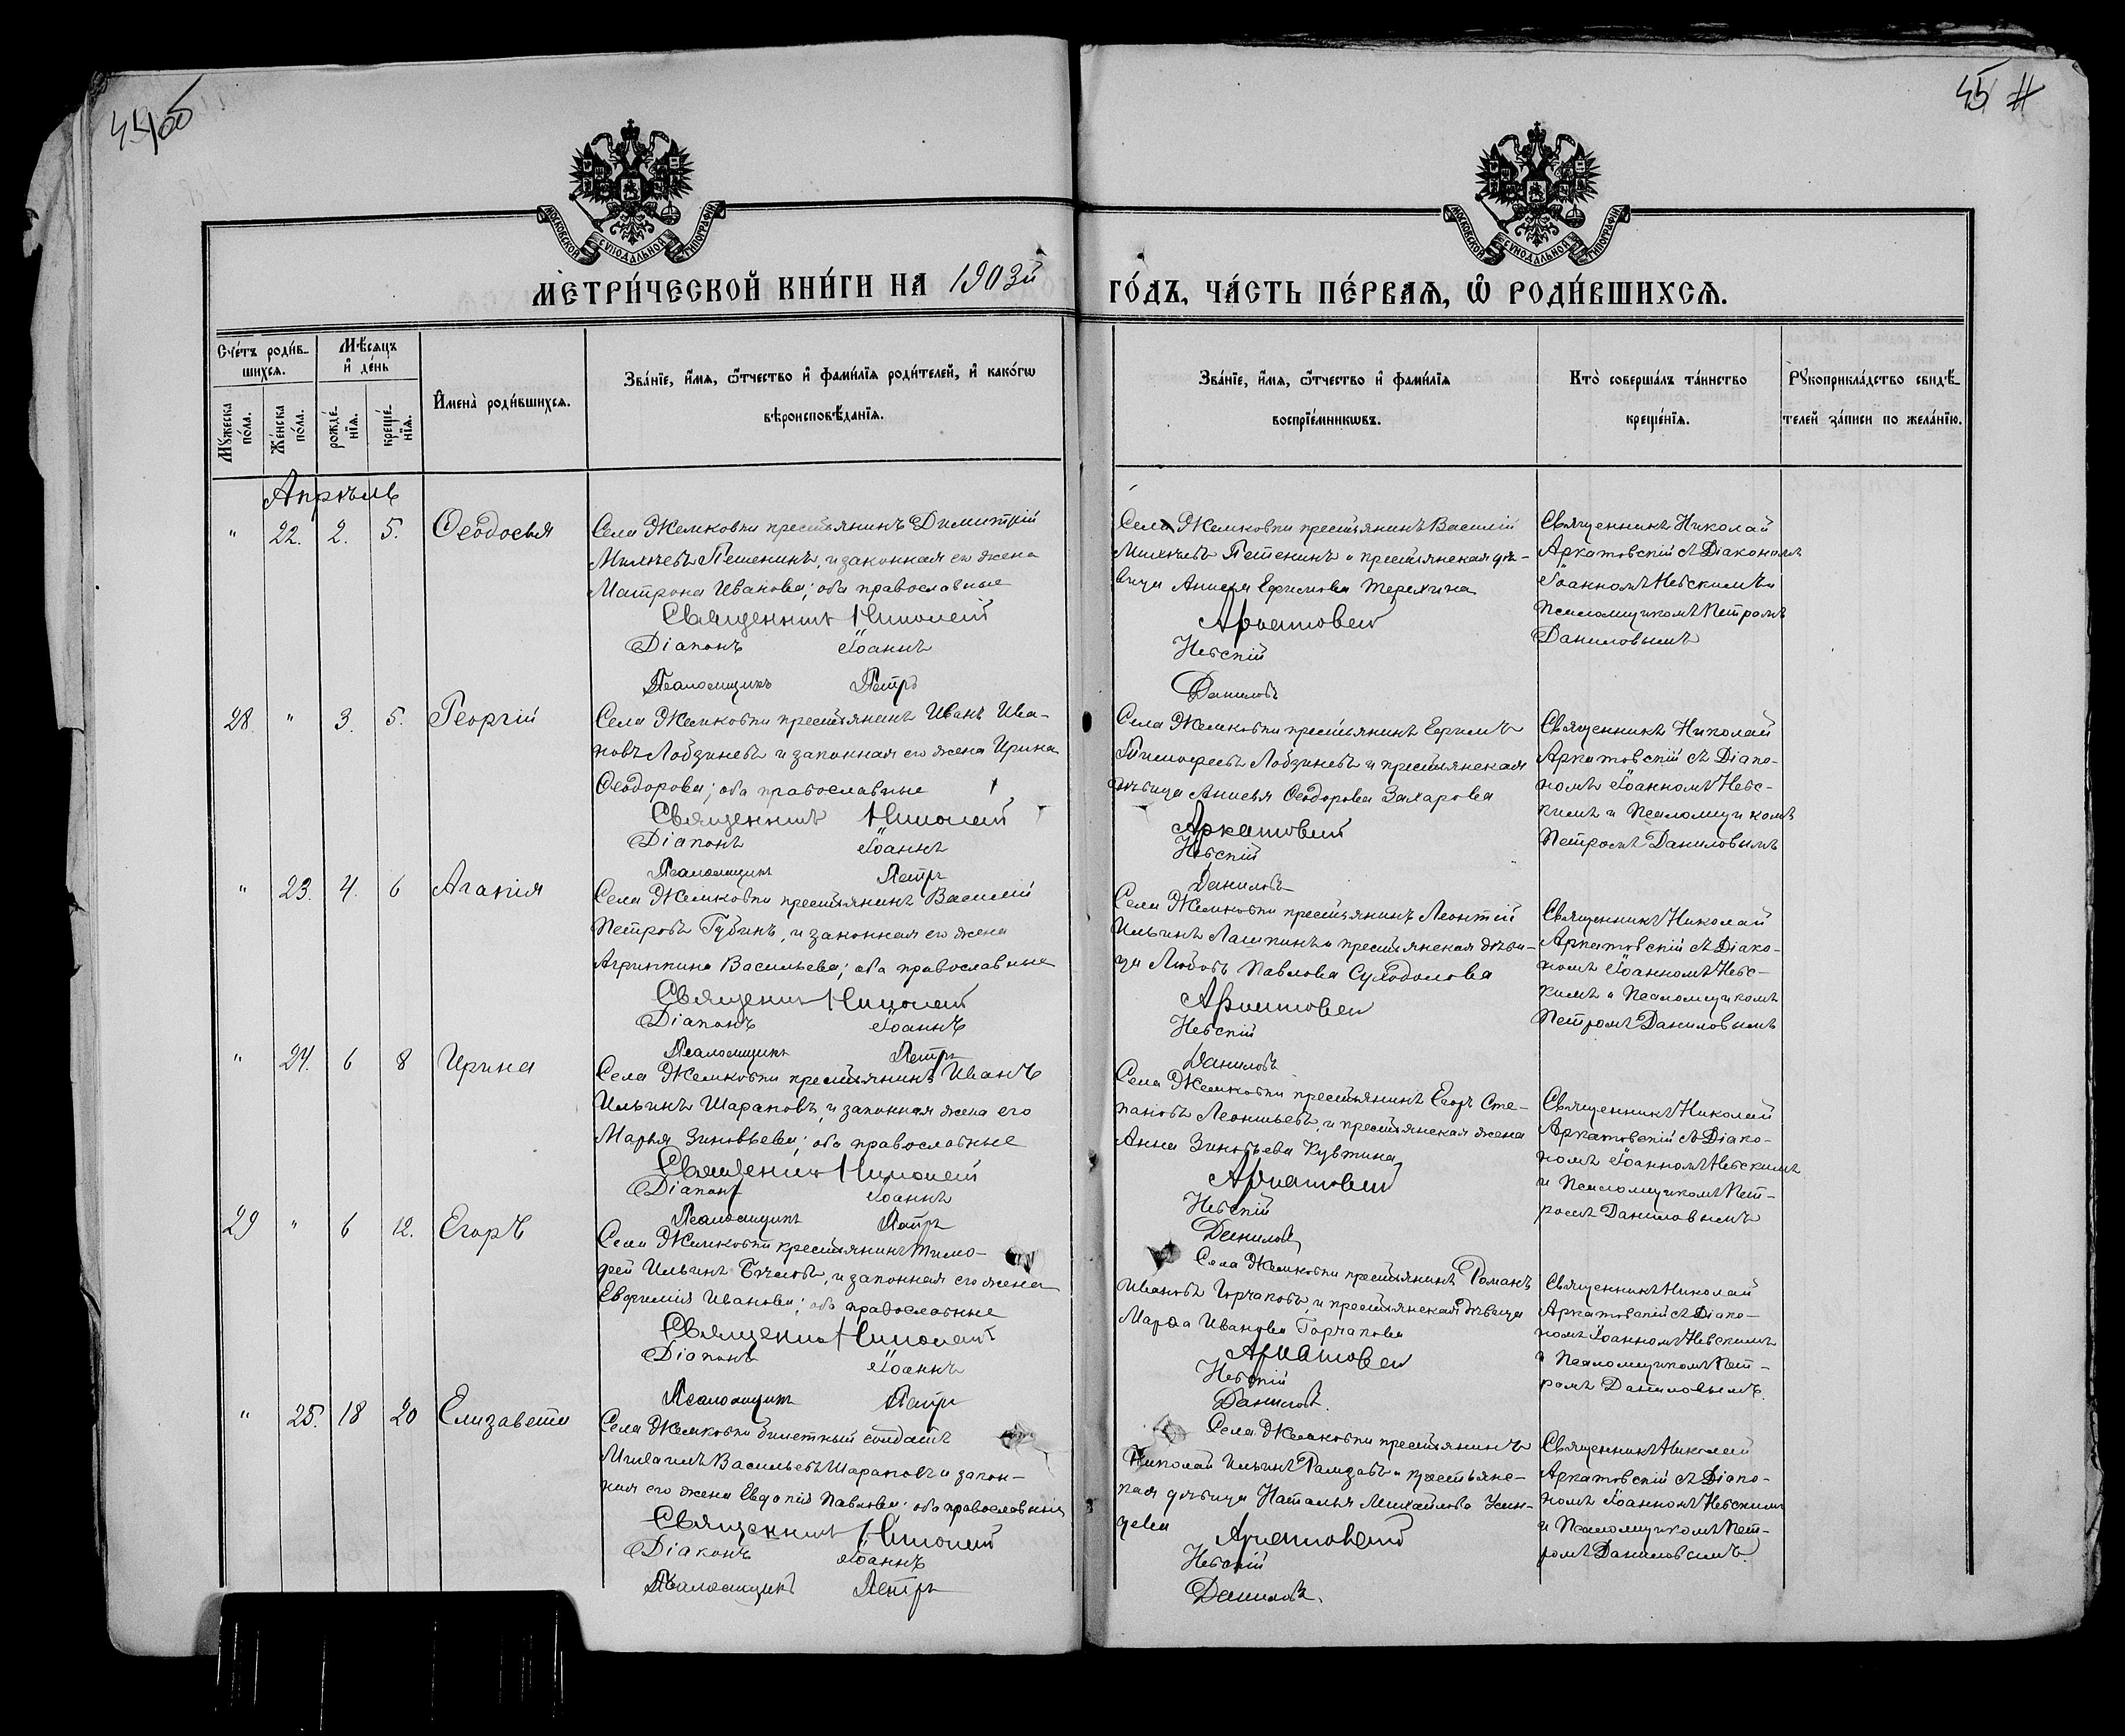 45 #
МОСКОВСКОЙ СѴНОДАЛЬНОЙ ТИПОГРАФІИ
МОСКОВСКОЙ СѴНОДАЛЬНОЙ ТИПОГРАФІИ
МЕТРИ́ЧЕСКОЙ КНИ́ГИ НА 1903й
ГО́ДЪ, ЧА́СТЬ ПЕ́РВАѦ, Ѽ РОДИ́ВШИХСѦ.
Сче́тъ роди́в-
шихсѧ.
Мѣ́сѧцъ
и҆ де́нь
Мꙋ́жеска
по́ла.
Же́нска
по́ла.
рожде́-
нїѧ.
креще́-
нїѧ.
И҆мена̀ роди́вшихсѧ.
Зва́нїе, и҆́мѧ, ѻ҆́тчество и҆ фами́лїѧ роди́телей, и҆ како́гѡ
вѣроисповѣ́данїѧ.
Зва́нїе, и҆́мѧ, ѻ҆́тчество и҆ фами́лїѧ
воспрїе́мникѡвъ.
Кто̀ соверша́лъ та́инство
креще́нїѧ.
Рꙋкоприкла́дство свидѣ́-
телей за́писи по жела́нїю.
Апрѣль
" 22. 2. 5. Ѳеодосья
Села Жемковки крестьянинъ Димитрій
Михѣевъ Пешенинъ, и законная его жена
Матрона Иванова; оба православные
Священникъ Николай
Діаконъ Іоаннъ
Псаломщикъ Петръ
Села Жемковки крестьянинъ Василій
Михѣевъ Пешенинъ и крестьянская дѣ-
вица Анисья Ефимова Терехина
Аркатовскій
Невскій
Даниловъ
Священникъ Николай
Аркатовскій съ Діакономъ
Іоанномъ Невскимъ и
Псаломщикомъ Петромъ
Даниловымъ
28. " 3. 5. Георгій
Села Жемковки крестьянинъ Иванъ Ива-
новъ Лобзиневъ и законная его жена Ирина
Ѳеодорова; оба православные
Священникъ Николай
Діаконъ Іоаннъ
Псаломщикъ Петръ
Села Жемковки крестьянинъ Ефимъ
Тимофеевъ Лобзиневъ и крестьянская
дѣвица Анисья Ѳеодорова Захарова
Аркатовскій
Невскій
Даниловъ
Священникъ Николай
Аркатовскій съ Діако-
номъ Іоанномъ Невс-
кимъ и Псаломщикомъ
Петромъ Даниловымъ
" 23. 4. 6 Агапія
Села Жемковки крестьянинъ Василій
Петровъ Губинъ, и законная его жена
Агриппина Васильева; оба православные
Священникъ Николай
Діаконъ Іоаннъ
Псаломщикъ Петръ
Села Жемковки крестьянинъ Леонтій
Ильинъ Лашкинъ и крестьянская дѣви-
ца Любовь Павлова Суходолова
Аркатовскій
Невскій
Даниловъ
Священникъ Николай
Аркатовскій съ Діако-
номъ Іоанномъ Невс-
кимъ и Псаломщикомъ
Петромъ Даниловымъ
" 24. 6 8 Ирина
Села Жемковки крестьянинъ Иванъ
Ильинъ Шараповъ, и законная жена его
Марья Зиновьева; оба православные
Священникъ Николай
Діаконъ Іоаннъ
Псаломщикъ Петръ
Села Жемковки крестьянинъ Егоръ Сте-
пановъ Леонтьевъ, и крестьянская жена
Анна Зиновьева
Аркатовскій
Невскій
Даниловъ
Священникъ Николай
Аркатовскій съ Діако-
номъ Іоанномъ Невскимъ
и Псаломщикомъ Пет-
ромъ Даниловымъ
29 " 6 12. Егоръ
Села Жемковки крестьянинъ Тимо-
фей Ильинъ и законная его жена
Евфимія Иванова; оба православные
Священникъ Николай
Діаконъ Іоаннъ
Псаломщикъ Петръ
Села Жемковки крестьянинъ Романъ
Ивановъ Горчаковъ, и крестьянская дѣвица
Марѳа Иванова Горчакова
Аркатовскій
Невскій
Даниловъ.
Священникъ Николай
Аркатовскій съ Діако-
номъ Іоанномъ Невскимъ
и Псаломщикомъ Пет-
ромъ Даниловымъ.
" 25. 18 20 Елизавета
Села Жемковки билетный солдатъ
Михаилъ Васильевъ Шараповъ и закон-
ная его жена Евдокія Павлова; оба православные
Священникъ Николай
Діаконъ Іоаннъ
Псаломщикъ Петръ
Села Жемковки крестьянинъ
Николай Ильинъ и крестьянс-
кая дѣвица Наталья Михайлова
Аркатовскій
Невскій
Даниловъ.
Священникъ Николай
Аркатовскій съ Діако-
номъ Іоанномъ Невскимъ
и Псаломщикомъ Пет-
ромъ Даниловымъ.